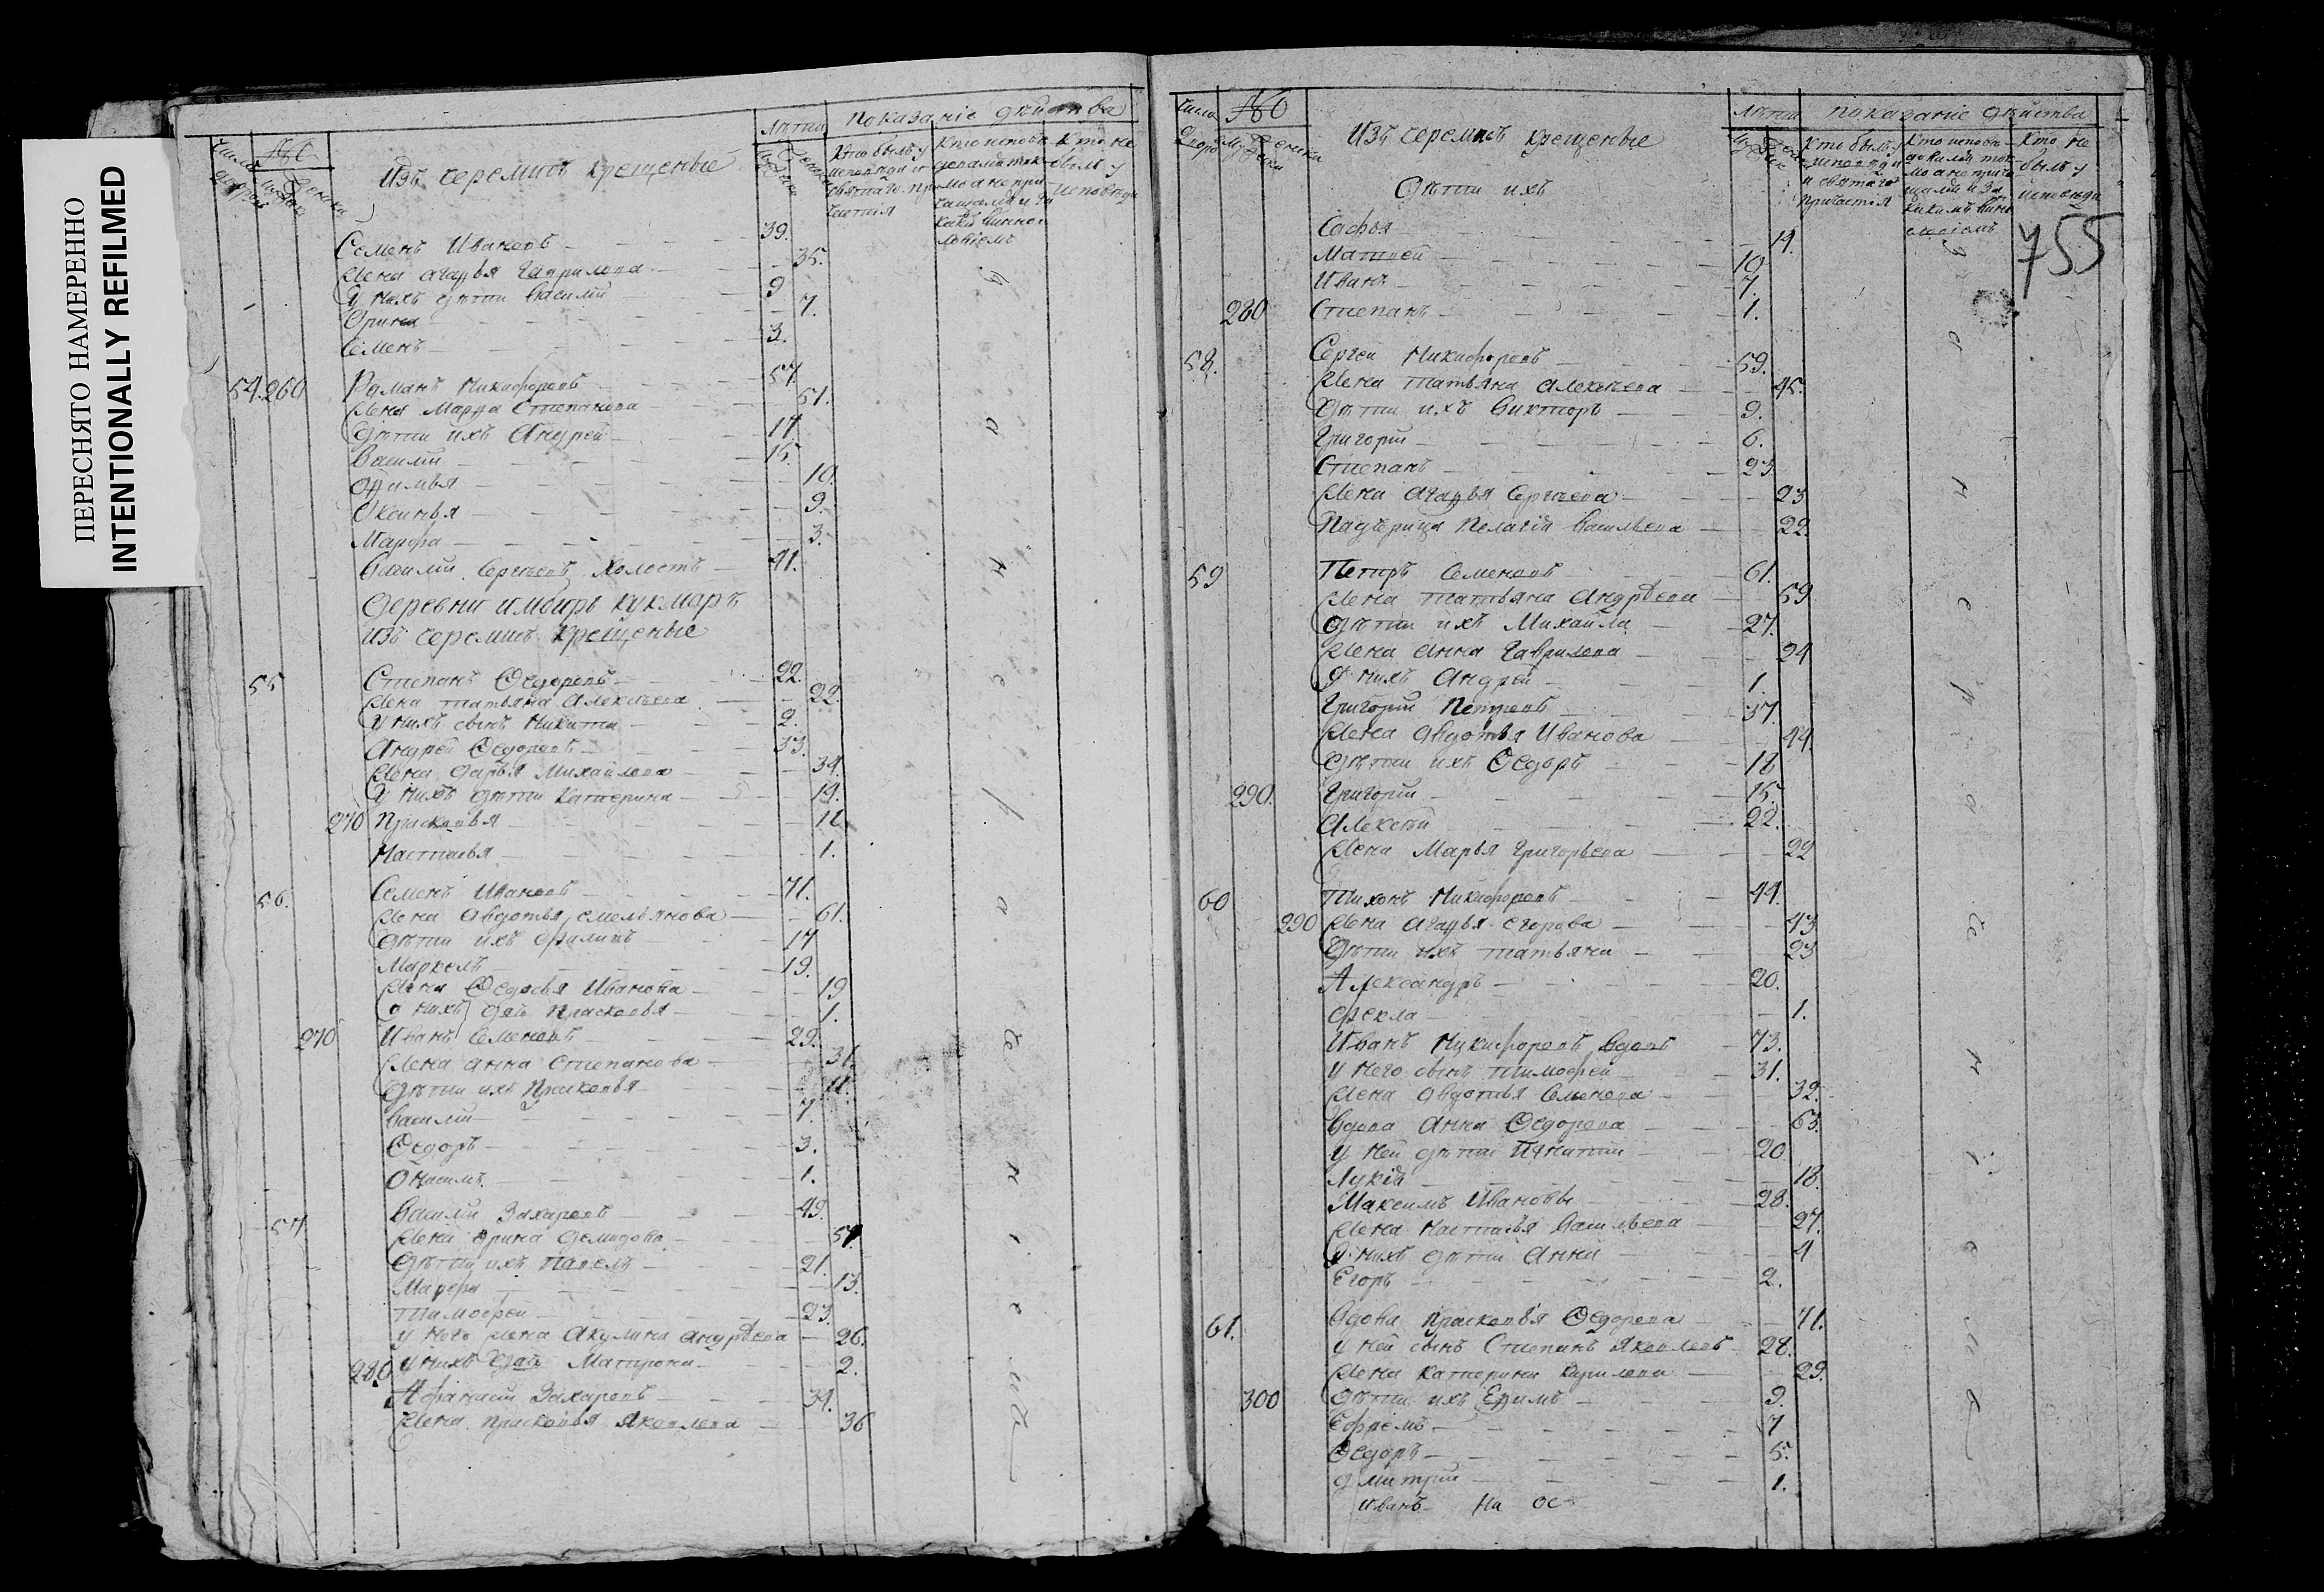 ПЕРЕСНЯТО НАМЕРЕННО
INTENTIONALLY REFILMED
Число дворовъ
№
Изъ черемисъ крещеные
Лѣта
Показаніе дѣйства
Кто былъ у исповѣди и святаго причастія
Кто не былъ у исповѣди
Семенъ Ивановъ 39.
Жена Агафья Гаврилова 35.
У нихъ дѣти Василій 9
Орина 7.
Семенъ 3.
54. 260 Романъ Никифоровъ 57.
Жена Марфа Степанова 51.
Дѣти ихъ Андрей 17
Василій 15.
Офимья 10.
Оксинья 9.
Марфа 3.
Василій Сергѣевъ холостъ 41.
Деревни Имбирь Кукмаръ
изъ черемисъ крещеные
55 Степанъ Ѳедоровъ 22.
Жена Татьяна Алексѣева 22.
У нихъ сынъ Никита 2.
Андрей Ѳедоровъ 33.
Жена Дарья Михайлова 34.
У нихъ дѣти Катерина 14.
270 Прасковья 11.
Настасья 1.
56. Семенъ Ивановъ 71.
Жена Авдотья Емельянова 61.
Дѣти ихъ Филипъ 17
Маркелъ 19.
Жена Ѳедосья Иванова 19
У нихъ дочь Прасковья 1.
270 Иванъ Семеновъ 29.
Жена Анна Степанова 31.
Дѣти ихъ Прасковья 11.
Василій 7.
Ѳедоръ 3.
Онисимъ 1.
57 Василій Захаровъ 49.
Жена Орина Демидова 51.
Дѣти ихъ Павелъ 21.
Марфа 13.
Тимофей 23.
У него жена Акулина Андрѣева 26.
280 У нихъ дочь Матрона 2.
Афанасій Захаровъ 34.
Жена Прасковья Яковлева 36
Число дворовъ
№
Изъ черемисъ крещеные
Лѣта
Показаніе дѣйства
Кто былъ у исповѣди и святаго причастія
Кто не былъ у исповѣди
755
Дѣти ихъ
Софья 14.
Матвей 10
Иванъ 7.
280 Степанъ 1.
58. Сергей Никифоровъ 59.
Жена Татьяна Алексѣева 45.
Дѣти ихъ Викторъ 9.
Григорій 6.
Степанъ 23
Жена Агафья Сергѣева 23
Падчерица Пелагія Васильева 22.
59 Петръ Семеновъ 61.
Жена Татьяна Андрѣева 59
Дѣти ихъ Михайла 27.
Жена Анна Гаврилова 24
У нихъ Андрей 1.
Григорій Петровъ 37.
Жена Авдотья Иванова 44.
Дѣти ихъ Ѳедоръ 18
290. Григорій 15.
Алексѣй 22.
Жена Марья Григорьева 22
60 Тихонъ Никифоровъ 44.
290 Жена Агафья Егорова 43
Дѣти ихъ Татьяна 23
Александръ 20.
Фекла 1.
Иванъ Никифоровъ вдовъ 73.
У него сынъ Тимофей 31.
Жена Авдотья Семенова 32.
Вдова Анна Ѳедорова 63.
У ней дѣти 20
Лукія 18.
Максимъ Ивановъ 28.
Жена Настасья Васильева 27.
У нихъ дѣти Анна 4
Егоръ 2.
61. Вдова Прасковья Ѳедорова 71.
У ней сынъ Степанъ Яковлевъ 28.
Жена Катерина Кирилова 29.
300 Дѣти ихъ Ефимъ 9.
Ефремъ 7
Ѳедоръ 5.
Дмитрій 1.
Иванъ На ос